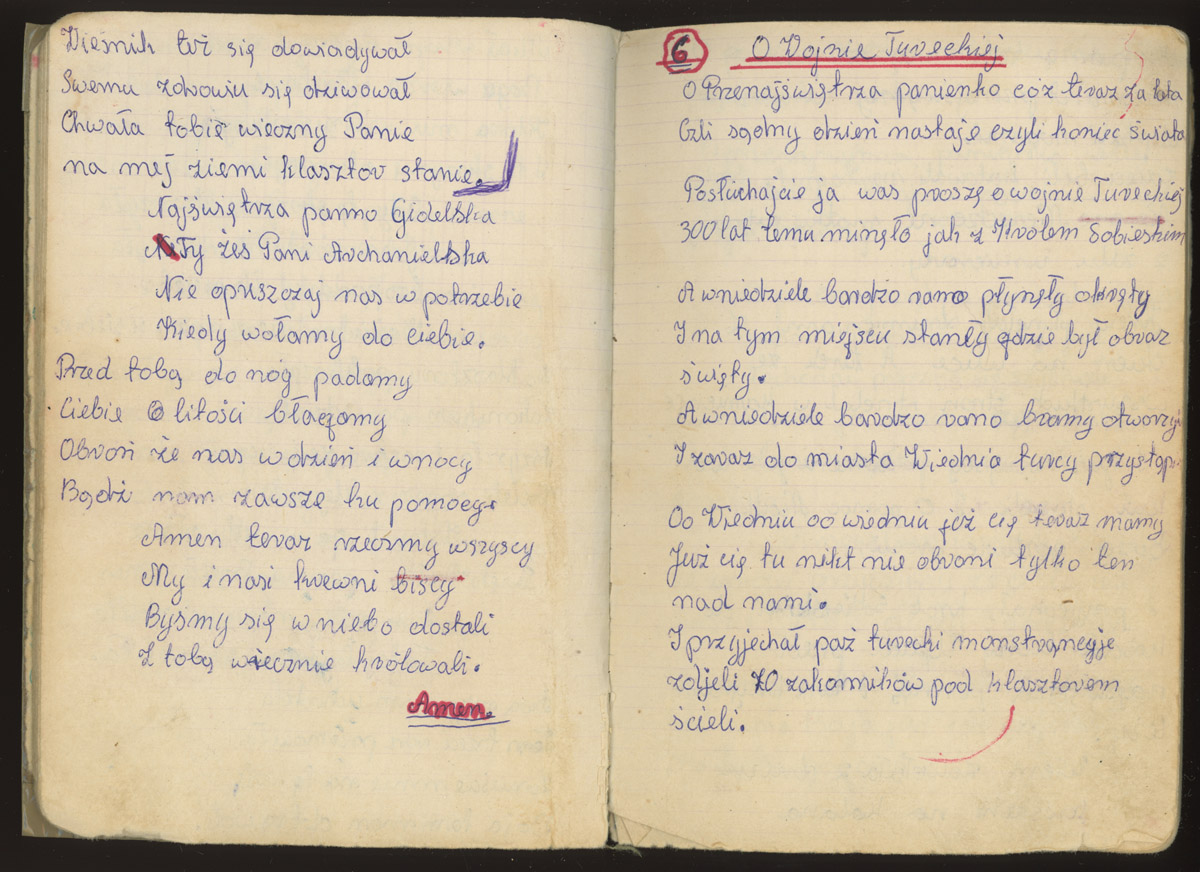 Wieśnik też się dowiadywał
Swemu zdrowiu się dziwował
Chwała tobie wieczny Panie
na mej ziemi klasztor stanie.
Najświętrza panno Gidelska
Ty żeś Pani Archanielska
Nie opuszczaj nas w potrzebie
Kiedy wołamy do ciebie.
Przed tobą do nóg padamy
Ciebie O litości błagamy
Obroń że nas w dzień i wnocy
Bądź nam zawsze ku pomocy.
Amen teraz rzeczmy wszyscy
My i nasi krewni biscy
Byśmy się w niebo dostali
Z tobą wiecznie królowali.
Amen.
6 O Wojnie Tureckiej
O Przenajświętrza panienko cóż teraz za lata
Czli sądny dzień nastaje czyli koniec świata
Posłuchajcie ja was proszę o wojnie Tureckiej
300 lat temu mineło jak z Królem Sobieskim
A wniedziele bardzo rano płynęły okręty
I na tym miejscu stanły gdzie był obraz
święty.
A wniedziele bardzo rano bramy otworzyl
I zaraz do miasta Wiednia turcy przystąp
Oo Wiedniu oo wiedniu już cię teraz mamy
Już cię tu nikt nie obroni tylko ten
nad nami.
I przyjechał paż turecki monstrancyje
zdjeli 70 zakonników pod klasztorem
ścieli.